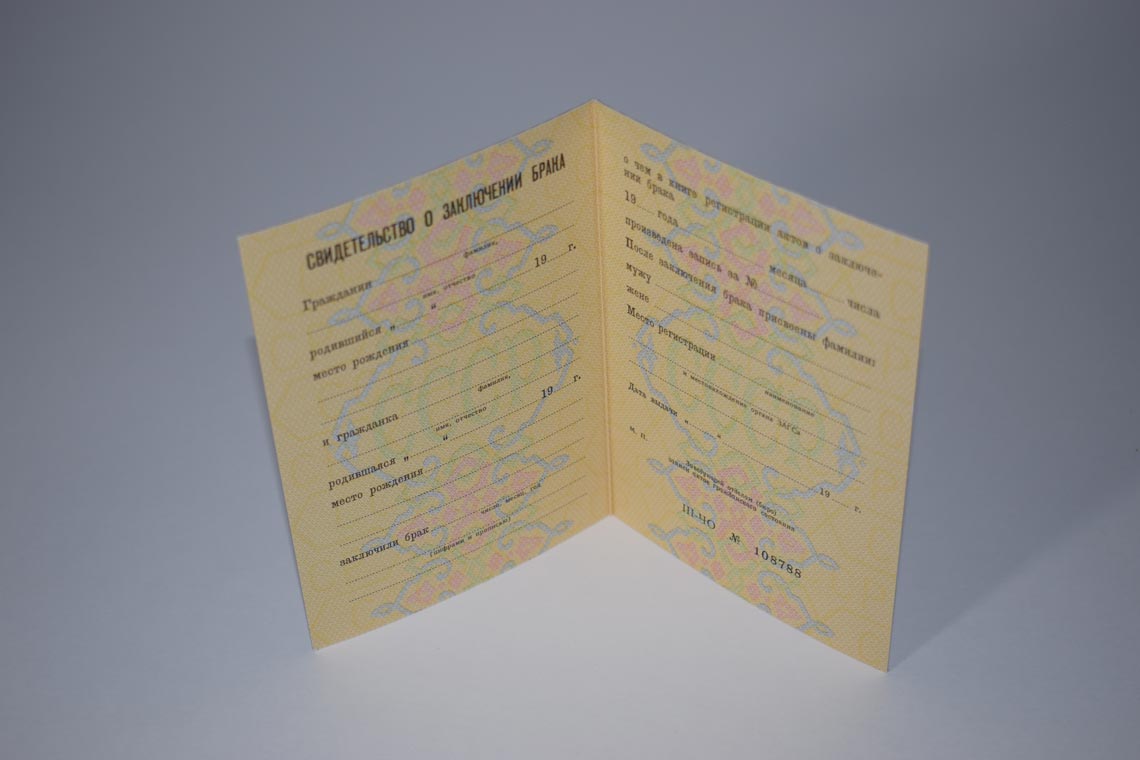 СВИДЕТЕЛЬСТВО О ЗАКЛЮЧЕНИИ БРАКА
Гражданин
фамилия,
имя, отчество
родившийся „ “ 19 г.
место рождения
и гражданка
фамилия,
имя, отчество
родившаяся „ “ 19 г.
место рождения
заключили брак
число, месяц, год
(цифрами и прописью)
о чем в книге регистрации актов о заключе-
нии брака
19 года месяца числа
произведена запись за №
После заключения брака присвоены фамилии:
мужу
жене
Место регистрации
наименование
и местонахождение органа ЗАГСа
Дата выдачи „ “ 19 г.
М. П.
Заведующий отделом (бюро)
записи актов гражданского состояния
III-ЧО № 108788